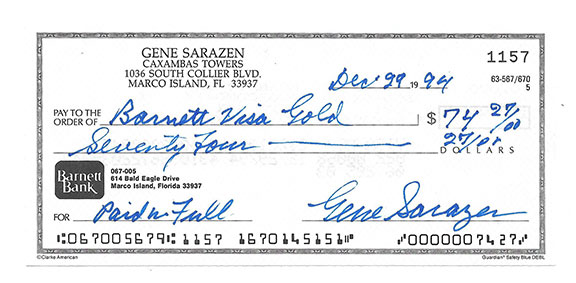 GENE SARAZEN
CAXAMBAS TOWERS
1036 SOUTH COLLIER BLVD.
MARCO ISLAND, FL 33937
1157
Dec 29 1994
63-567/670
5
PAY TO THE ORDER OF Barnett Visa Gold $ 74 27/00
Seventy Four 27/00 DOLLARS
Barnett Bank
067-005
614 Bald Eagle Drive
Marco Island, Florida 33937
FOR Paid in Full Gene Sarazen
⑆067005679⑆1157 1670145151⑈ ⑈0000007427⑈
©Clarke American Guardian® Safety Blue DEBL